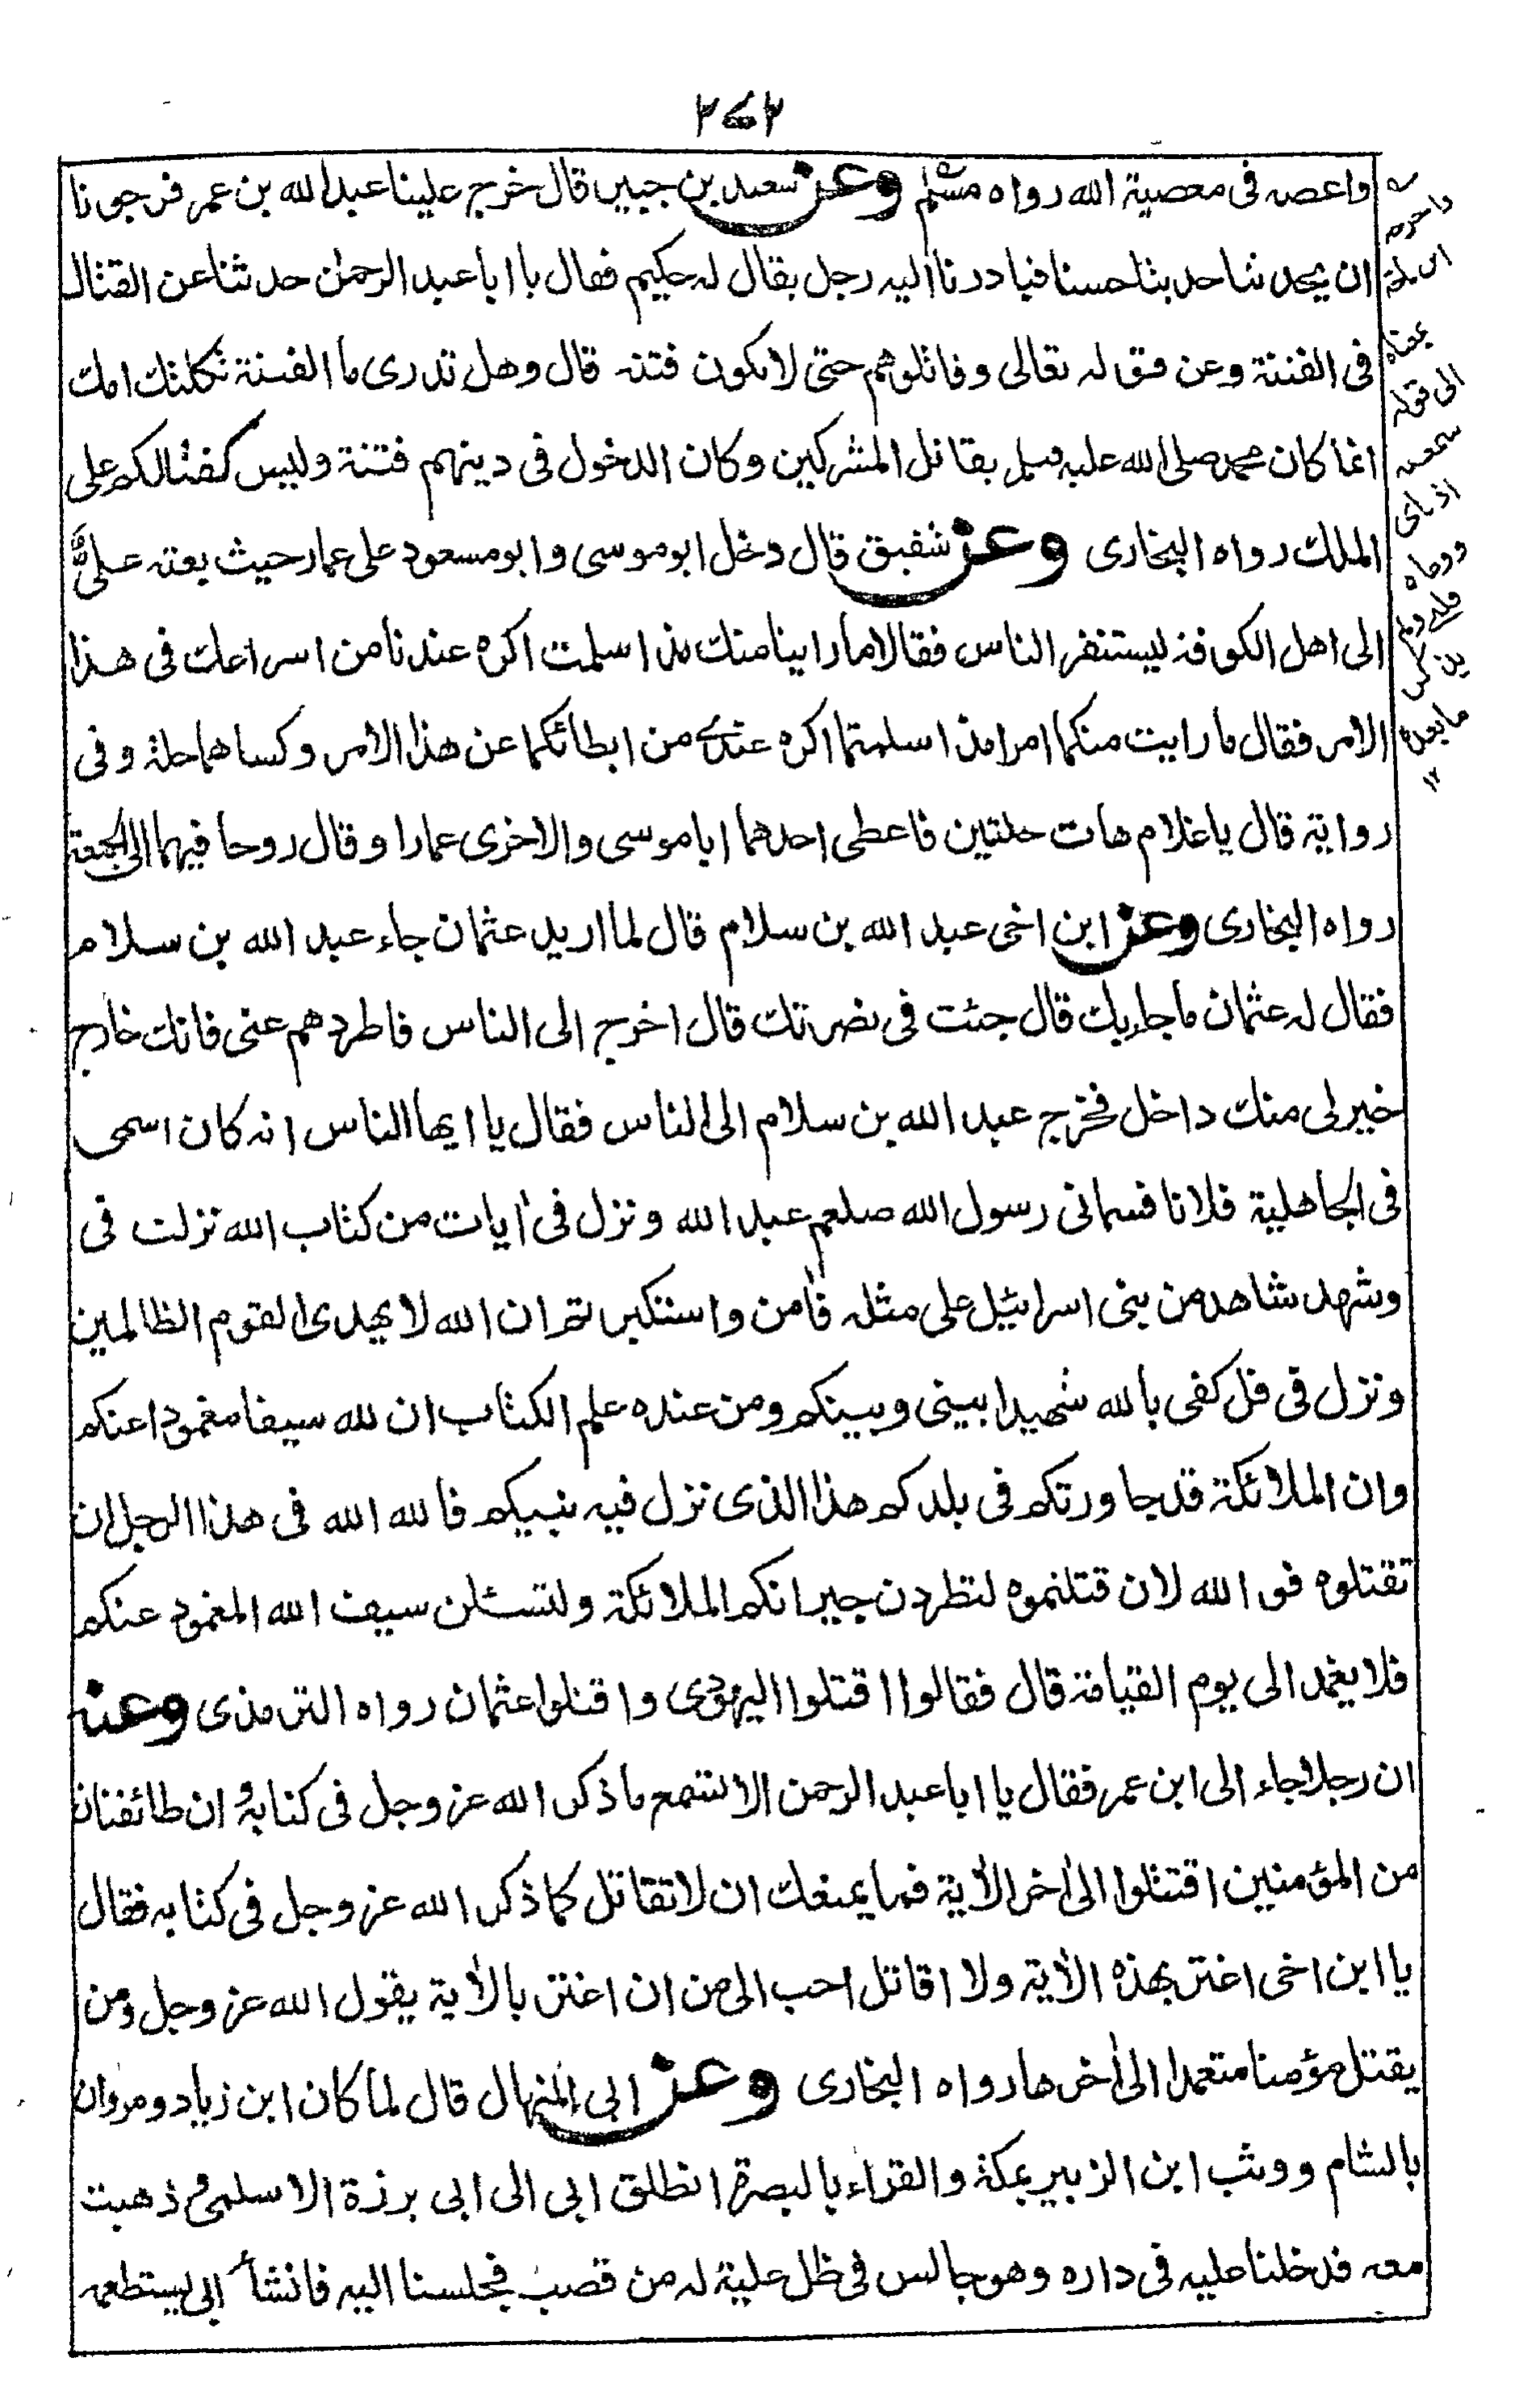 ٢٧٢
واعصه فى معصية الله رواه مسلم وعن سعيد بن جبير قال خرج علينا عبد الله بن عمر فرجونا
ان يحدثنا حديثا حسنا فبادرنا اليه رجل يقال له حكيم فقال يا ابا عبد الرحمن حدثنا عن القتال
فى الفتنة وعن قوله تعالى وقاتلوهم حتى لا تكون فتنه قال وهل تدرى ما الفتنة ثكلتك امك
انما كان محمد صلى الله عليه وسلم يقاتل المشركين وكان الدخول فى دينهم فتنة وليس كقتالكم على
الملك رواه البخارى وعن شقيق قال دخل ابو موسى وابو مسعود على عمار حيث بعثه على
الى اهل الكوفة ليستنفر الناس فقالا ما راينا منك مذ اسلمت اكره عندنا من اسراعك فى هذا
الامر فقال ما رايت منكما امرا مذ اسلمتما اكره عندے من ابطائكما عن هذا الامر وكساهما حلة وفى
رواية قال يا غلام هات حلتين فاعطى احدهما ابا موسى والاخرى عمارا وقال روحا فيهما الى الجمعة
رواه البخارى وعن ابن اخى عبد الله بن سلام قال لما اريد عثمان جاء عبد الله بن سلام
فقال له عثمان ما جاء بك قال جئت فى نصرتك قال اخرج الى الناس فاطردهم عنى فانك خارج
خير لى منك داخل فخرج عبد الله بن سلام الى الناس فقال يا ايها الناس انه كان اسمى
فى الجاهلية فلانا فسمانى رسول الله صلعم عبد الله ونزل فى ايات من كتاب الله نزلت فى
وشهد شاهد من بنى اسرائيل على مثله فامن واستكبرتم ان الله لا يهدى القوم الظالمين
ونزل فى قل كفى بالله شهيدا بينى وبينكم ومن عنده علم الكتاب ان لله سيفا مغمودا عنكم
وان الملائكة قد جاورتكم فى بلدكم هذا الذى نزل فيه نبيكم فالله الله فى هذا الرجل ان
تقتلوه فو الله لان قتلتموه لتطردن جيرانكم الملائكة ولتسئلن سيف الله المغمود عنكم
فلا يغمد الى يوم القيامة قال فقالوا اقتلوا اليهودى واقتلوا عثمان رواه الترمذى وعنه
ان رجلا جاء الى ابن عمر فقال يا ابا عبد الرحمن الا تستمع ما ذكر الله عز وجل فى كتابه وان طائفتان
من المؤمنين اقتتلوا الى اخر الاية فما يمنعك ان لا تقاتل كما ذكر الله عز وجل فى كتابه فقال
يا ابن اخى اغتر بهذه الاية ولا اقاتل احب الى من ان اغتر بالاية يقول الله عز وجل ومن
يقتل مؤمنا متعمدا الى اخرها رواه البخارى وعن ابى المنهال قال لما كان ابن زياد ومروان
بالشام ووثب ابن الزبير بمكة والقراء بالبصرة انطلق ابى الى ابى برزة الاسلمى وذهبت
معه فدخلنا عليه فى داره وهو جالس فى ظل علية له من قصب فجلسنا اليه فانشأ ابى يستطعمه
الى قوله
ما بعده
١٢